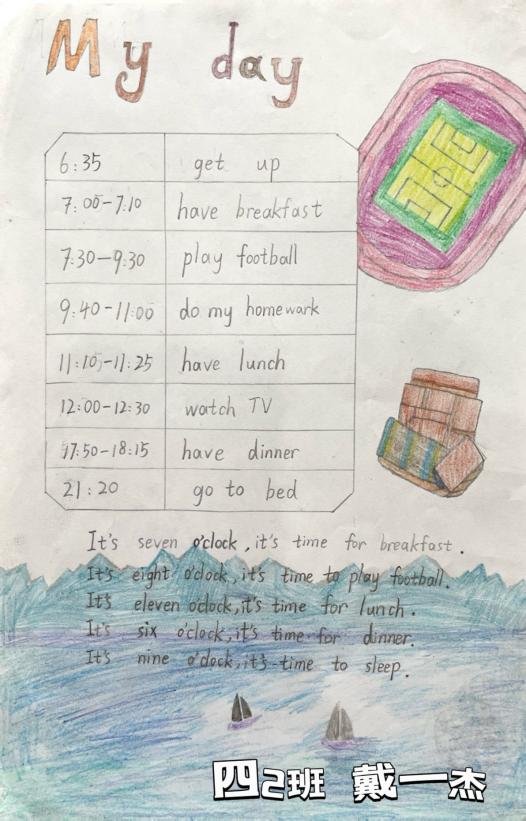 My day
6:35 get up
7:00-7:10 have breakfast
7:30-9:30 play football
9:40-11:00 do my homework
11:10-11:25 have lunch
12:00-12:30 watch TV
17:50-18:15 have dinner
21:20 go to bed
It's seven o'clock, it's time for breakfast.
It's eight o'clock, it's time to play football.
It's eleven o'clock, it's time for lunch.
It's six o'clock, it's time for dinner.
It's nine o'clock, it's time to sleep.
四2班 戴一杰